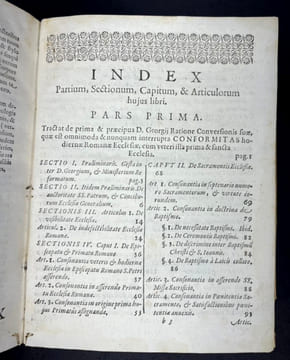 INDEX
Partium, Sectionum, Capitum, & Articulorum
hujus libri.
PARS PRIMA.
Tractat de prima & præcipua D. Georgij Ratione Conversionis suæ,
quæ est omnimoda & nunquam interrupta CONFORMITAS ho-
diernæ Romanæ Ecclesiæ, cum veteri illa prima & sancta
Ecclesia. pag.1
SECTIO I. Præliminaris. Gesta in-
ter D. Georgium, & Ministerium Re-
formatum. pag.1
SECTIO II. Itidem Præliminaris. De
authoritate SS. Patrum, & Concilus
Ecclesiæ Generalium.
SECTIONIS III. Articulus 1. De
visibilitate Ecclesiæ. 14
Articul. 2. De indefectibilitate Ecclesiæ
Romanæ. 24
SECTIONIS IV. Caput I. De Epi-
scopatu & Primatu Romano 36
Art. 1. Consonantia veteris & hodiernæ
Ecclesiæ in Episcopatu Romano S. Petri
asserendo. 37
Art. 2. Consonantia in asserendo Prima-
tu Ecclesiæ Romanæ. 40
Art. 3. Consonantia in origine prima hu-
jus Primatus assignanda. 53
CAPUT II. De Sacramentis Ecclesiæ.
68
Art. 1. Consonantia in septenario nume-
ro Sacramentorum, & virtute eo-
rundem. 69
Artic. 2. Consonantia in doctrina de
Baptismo. 79
§. 1. De necessitate Baptismi. Ibid.
§. 2. De Ceremoniis Baptismi. 82
§. 3. De discrimine inter Baptismum
Christi & S. Joannis. 84
§. 4. De Baptismo à Laicis collato.
86
Artic. 3. Consonantia in asserendo SS.
Missæ Sacrificio. 88
Artic. 4. Consonantia in Pænitentiæ Sa-
cramento, & Satisfactionibus pœni-
tentiæ annexis. 93
b 3 Artic.